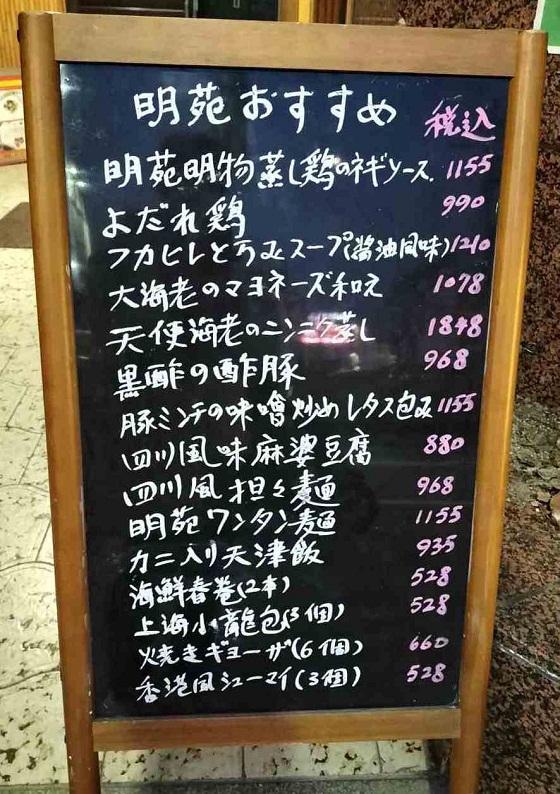 明苑おすすめ 税込
明苑明物蒸し鶏のネギソース 1155
よだれ鶏 990
フカヒレとろみスープ(醤油風味) 1210
大海老のマヨネーズ和え 1078
天使海老のニンニク蒸し 1848
黒酢の酢豚 968
豚ミンチの味噌炒めレタス包み 1155
四川風味麻婆豆腐 880
四川風担々麺 968
明苑ワンタン麺 1155
カニ入り天津飯 935
海鮮春巻(2本) 528
上海小龍包(3個) 528
焼きギョーザ(6個) 660
香港風シューマイ(3個) 528